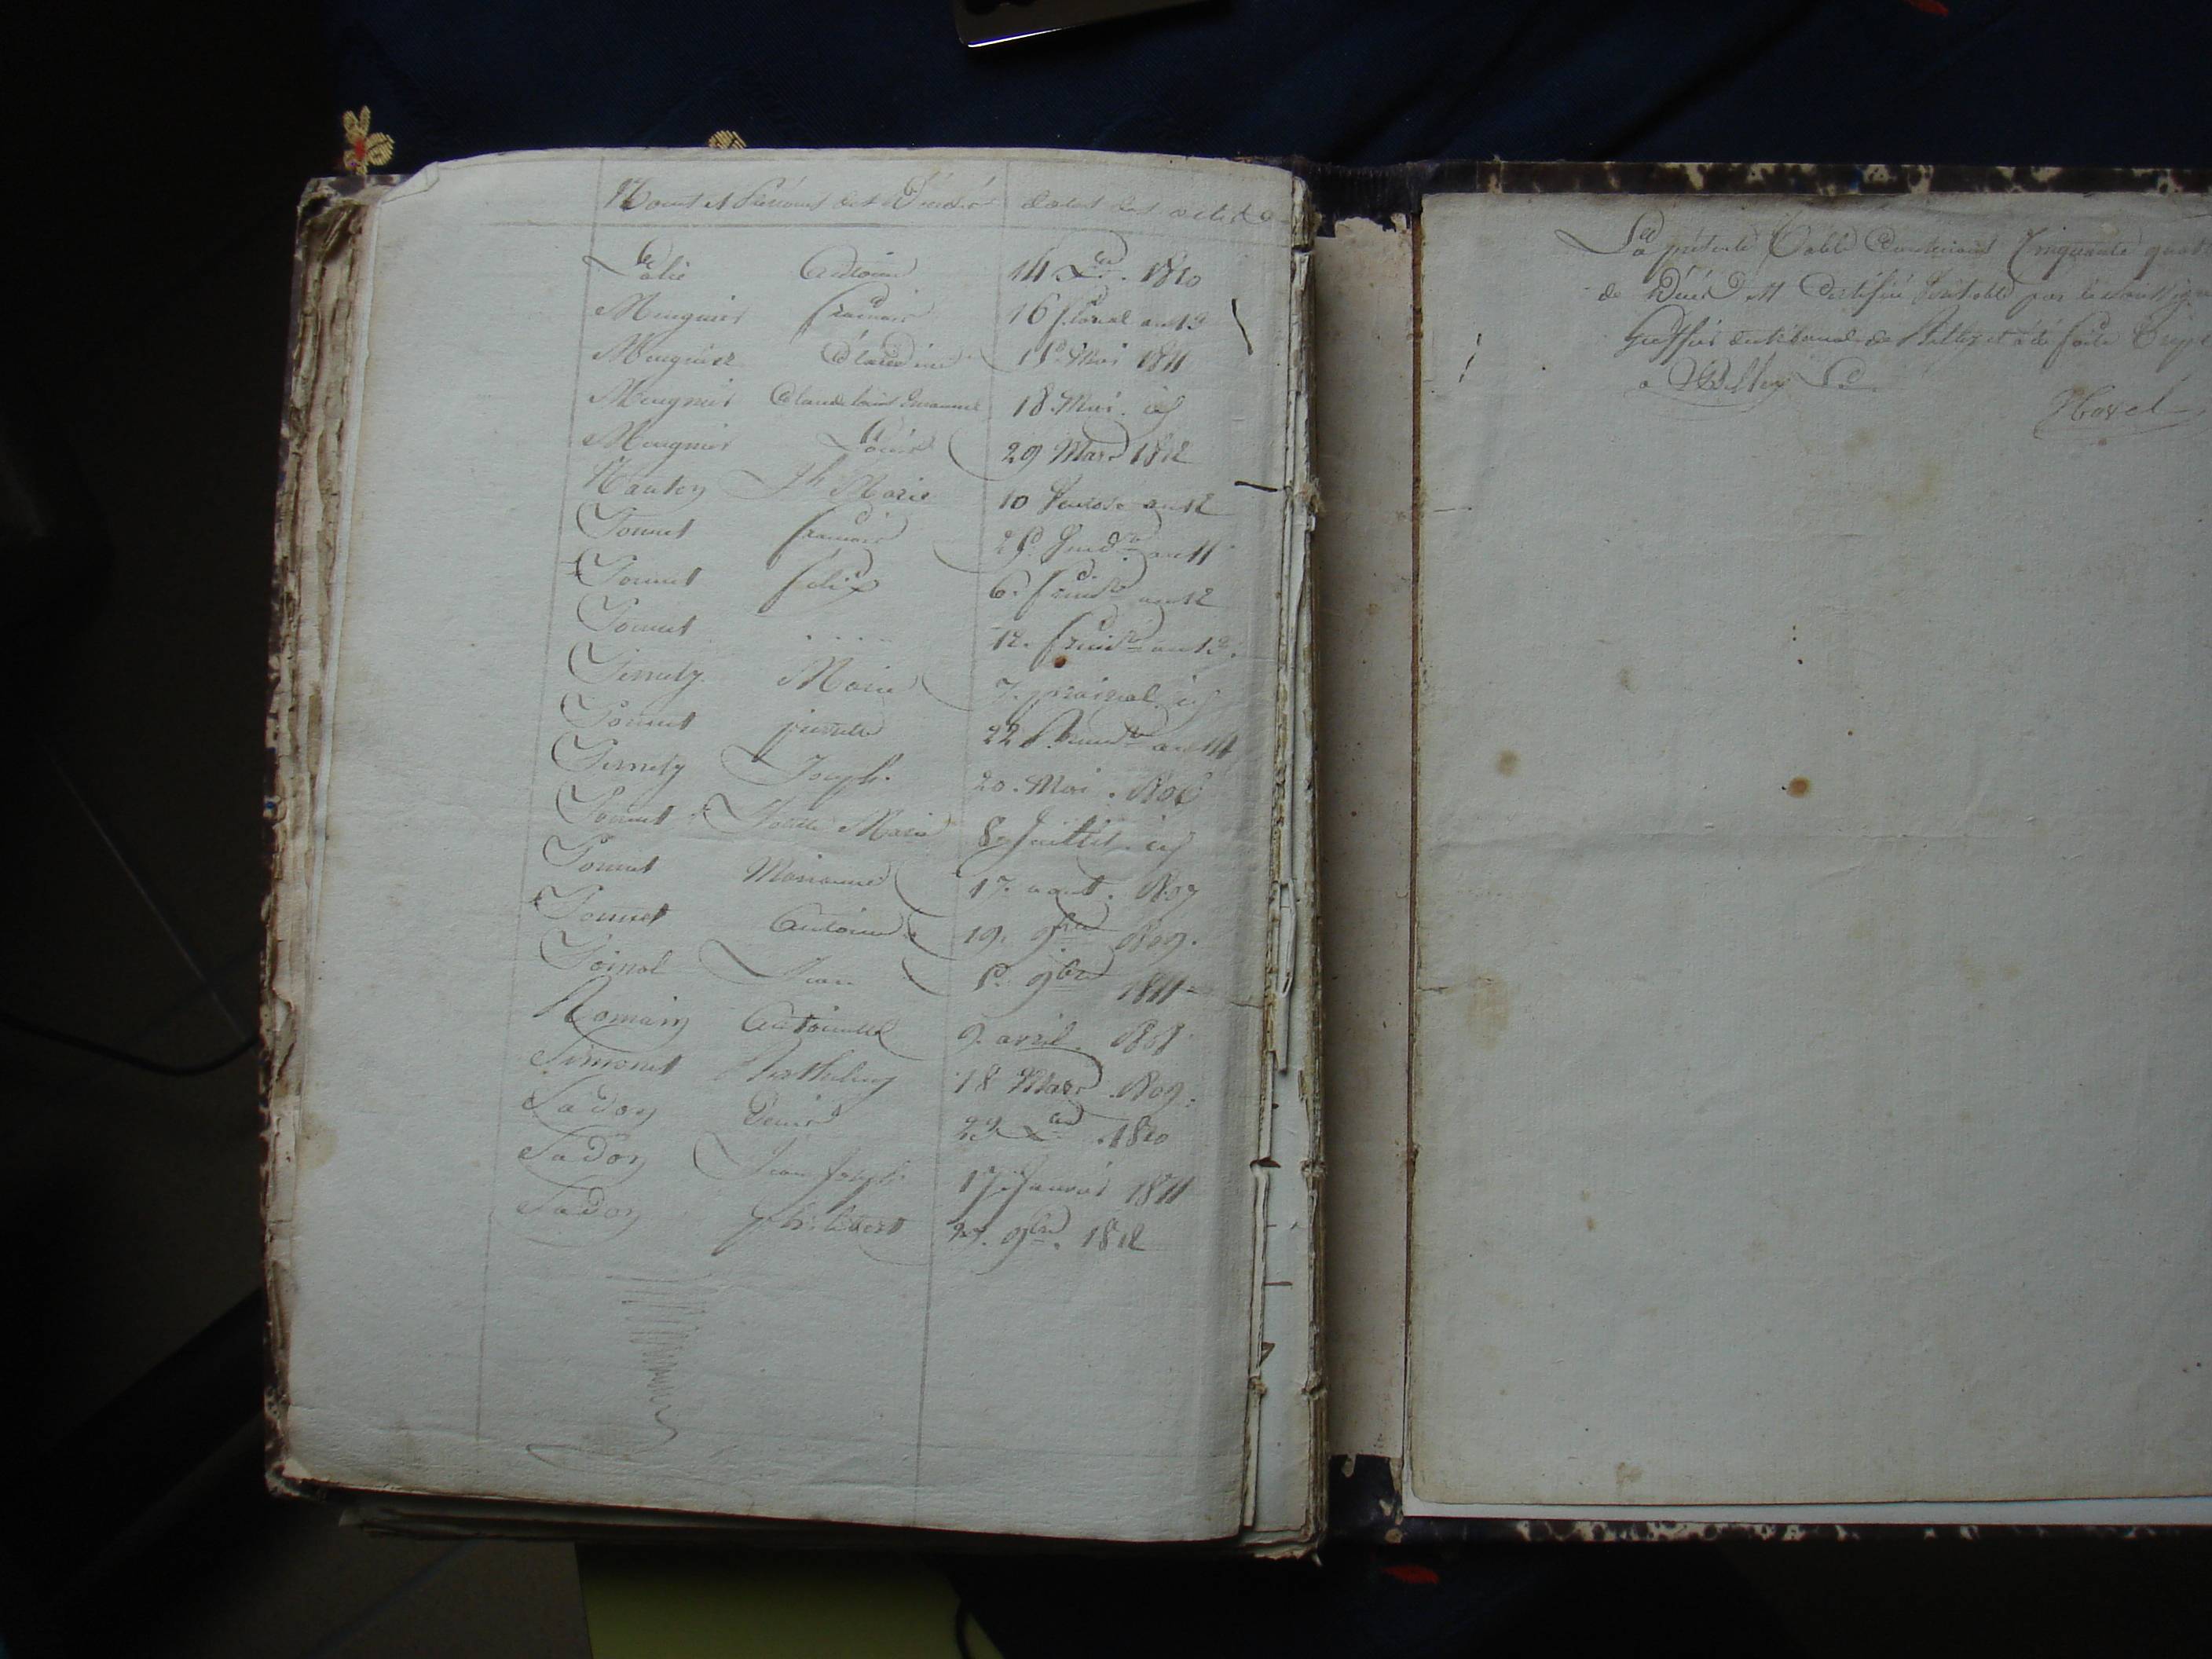 Noms et Prénoms des Décédés dates des actes
Antoine 14 Xbre 1810
Meugnier françois 16 floreal an 13
Meugnier Claudine 15 Mai 1811
Meugnier Claude Louis Emanuel 18 Mai id
Meugnier Louis 29 Mars 1812
Nantey Jh Marie 10 Ventose an 12
Ponnet françois an 11
Ponnet felix 6. fruct. an 12
Ponnet . . . . 12. fruct. an 13.
Pernety Marie 7. prairial id
Ponnet 22 an 14
Pernety Joseph. 20. Mai. 1806
Ponnet Marie 8. Juillet. id
Ponnet Marianne 17. aout. 1807
Ponnet Antoine 19. 9bre 1809.
Poinol Jean 5. 9bre 1811
Romain Antoinette 9. avril. 1808
Simonet Barthelemy 18 Mars 1809.
Sadon Denis 23. Xbre. 1810
Sadon Jean Joseph 17. Janvier 1811
Sadon Philibert 9bre. 1812
La présente Table Contenant Cinquante quat
de Décès est Certifiée Veritable par le Soussigné
Greffier du tribunal de Belley et a été faite Triple
a Belley Le